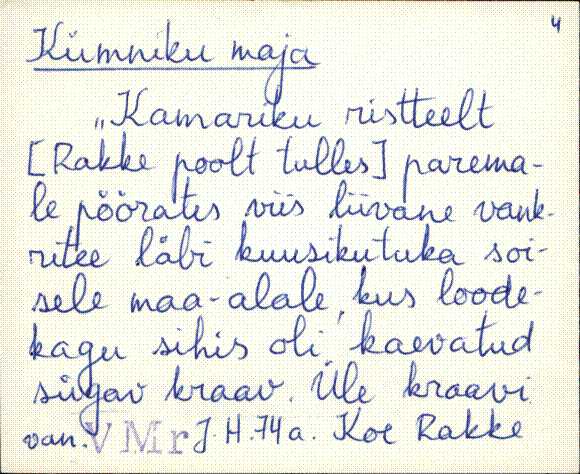 4
Kümniku maja
„Kamariku ristteelt
[Rakke poolt tulles] parema-
le pöörates viis liivane vank-
ritee läbi kuusikutuka soi-
sele maa-alale, kus loode-
kagu sihis oli kaevatud
sügav kraav. Üle kraavi
van. VMr J.H. 74 a. Koe Rakke